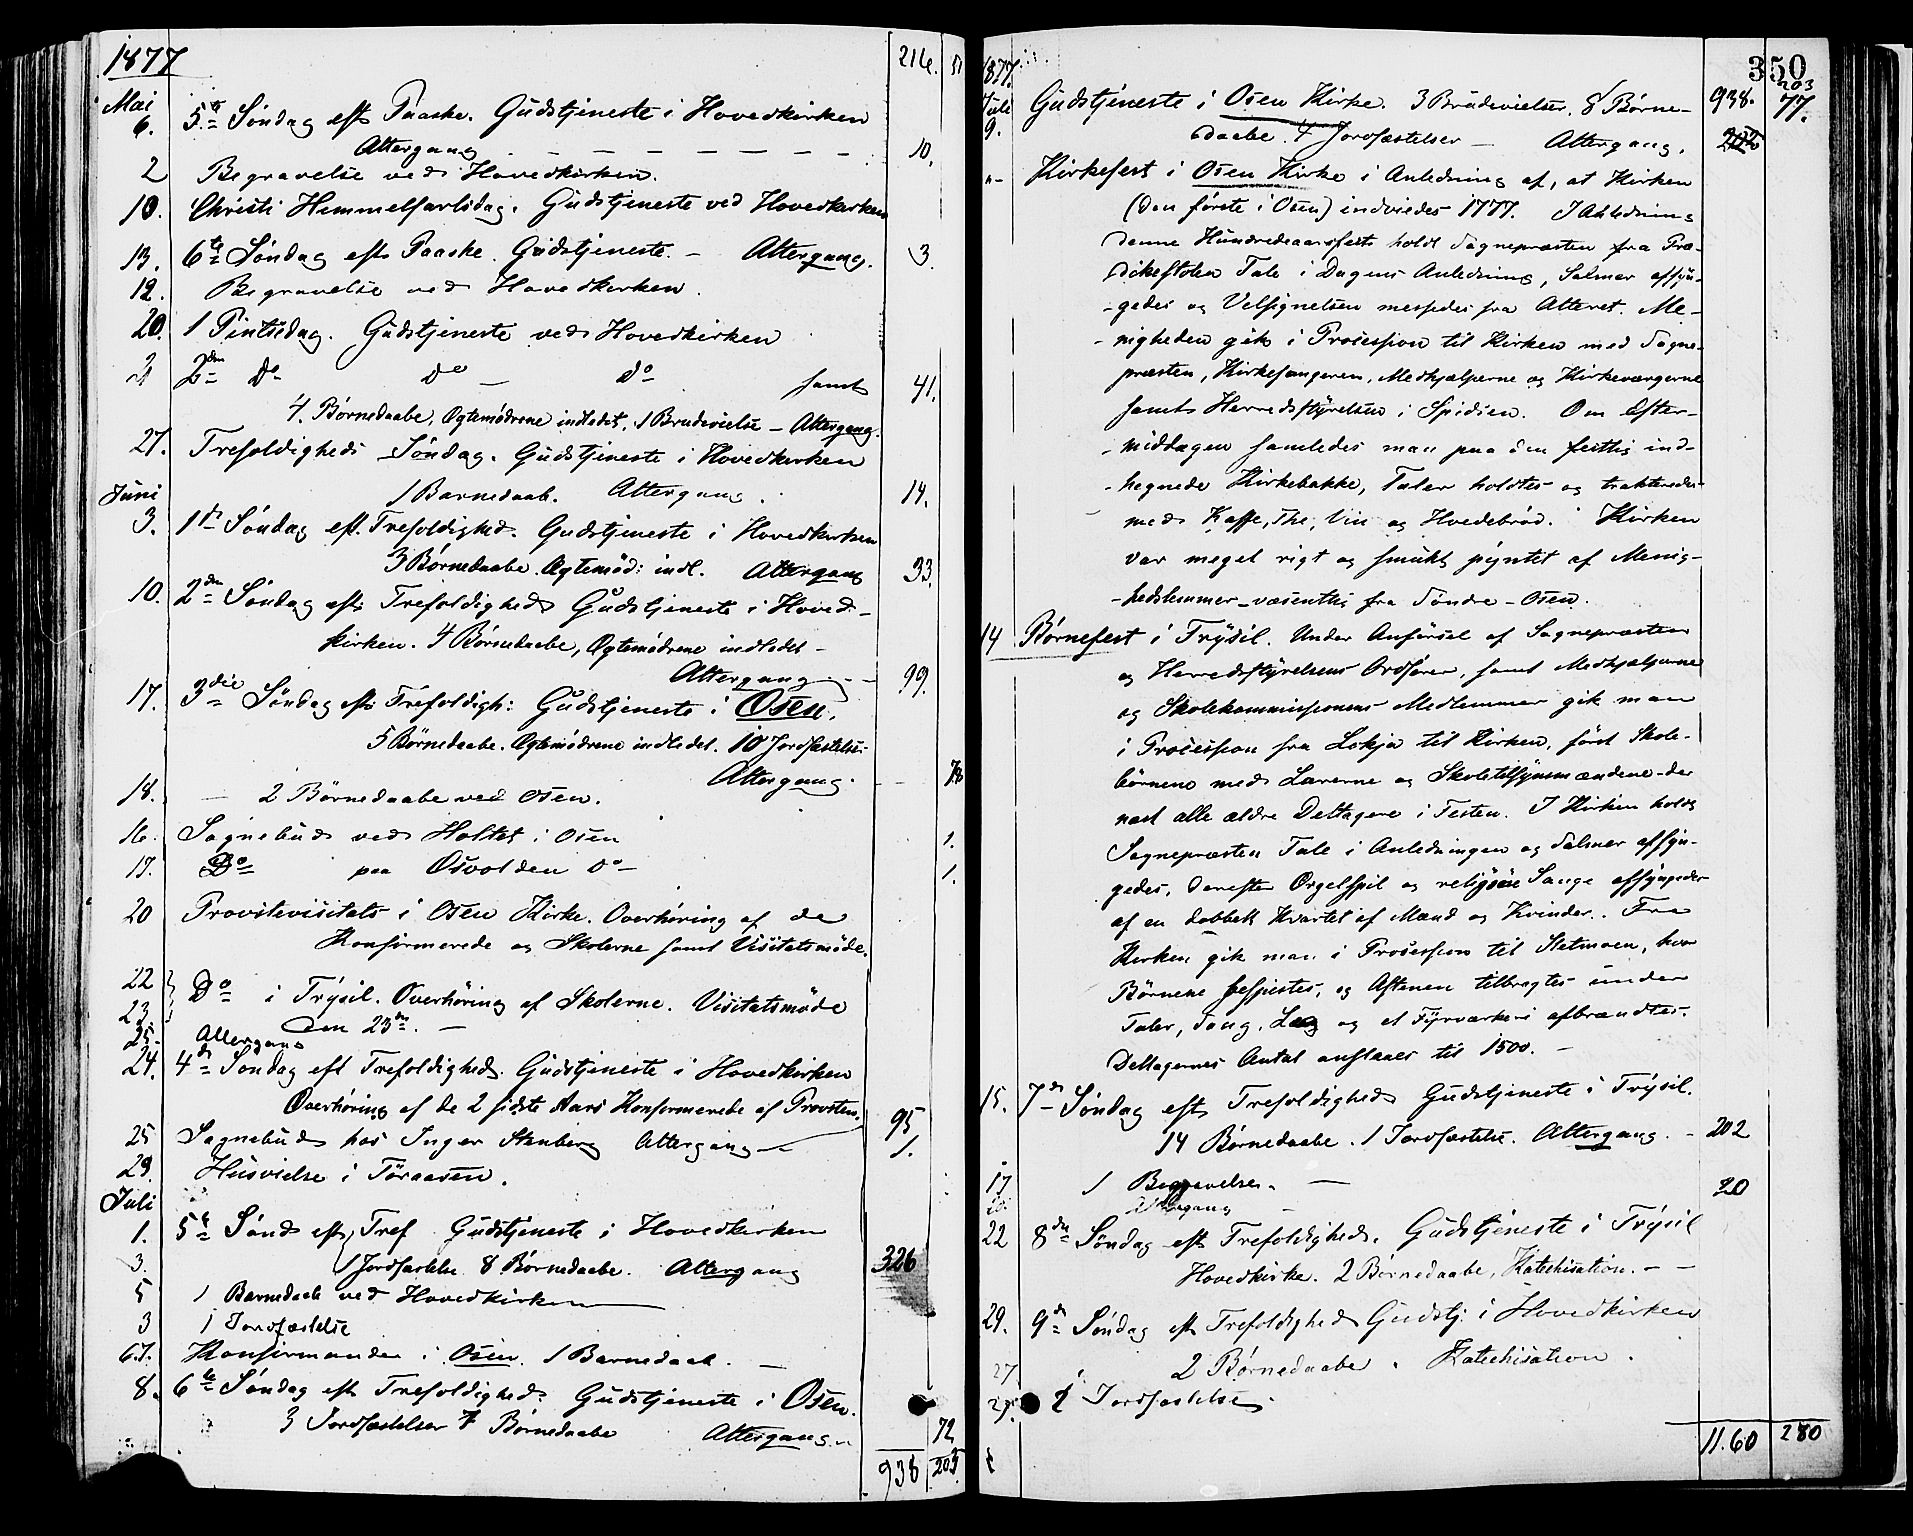 1877
216. 51
Mai
6. 5te Søndag eft Paaske. Gudstjeneste i Hovedkirken
Altergang — — — — — — — 10.
2 Begravelse ved Hovedkirken.
10. Christi Himmelfartsdag. Gudstjeneste ved Hovedkirken
13. 6te Søndag eft Paaske. Gudstjeneste. – Altergang. 3.
12. Begravelse ved Hovedkirken.
20. 1 Pintsedag. Gudstjeneste ved Hovedkirken
21 2den Do Do — Do samt 41.
4. Børnedaabe, Ægtemødrene indledet, 1 Brudevielse – Altergang.
27. Trefoldigheds Søndag. Gudstjeneste i Hovedkirken
1 Barnedaab. Altergang. 14.
Juni
3. 1ste Søndag eft. Trefoldighed. Gudstjeneste i Hovedkirken
3 Børnedaabe. Ægtemød: indl. Altergang 33.
10. 2den Søndag eft Trefoldighed Gudstjeneste i Hoved-
kirken. 4 Børnedaabe, Ægtemødrene indledet –
Altergang — 99.
17. 3die Søndag eft Trefoldigh: Gudstjeneste i Osen.
5 Børnedaabe. Ægtemødrene indledet. 10 Jordfæstelse.
Altergang. – 78
18. — 2 Børnedaabe ved Osen.
16. Sognebud ved Holtet i Osen 1.
17. Do paa Osvolden Do – 1.
20 Provstevisitats i Osen Kirke. Overhøring af de
Konfirmerede og Skolerne samt Visitatsmøde.
22
23 Do i Trysil. Overhøring af Skolerne. Visitatsmøde
den 23de. —
25 Altergang
24. 4de Søndag eft Trefoldighed. Gudstjeneste i Hovedkirken
Overhøring af de 2 sidste Aars Konfirmerede af Provsten. 95
25 Sognebud hos Inger Stenberg Altergang — 1.
29. Husvielse i Føraasen.
Juli
1. 5te Sønd eft Tref Gudstjeneste i Hovedkirken
3. 1 Jordfæstelse 8 Børnedaabe. Altergang 326
5 1 Barnedaab ved Hovedkirken —
3 1 Jordfæstelse
6.7. Konfirmander i Osen. 1 Barnedaab. —
8. 6te Søndag eft Trefoldighed. Gudstjeneste i Osen.
3 Jordfæstelser 7 Børnedaabe Altergang.. 72
938 203
1877.
350
Juli
9. Gudstjeneste i Osen Kirke. 3 Brudevielser. 8 Børne- 938. 203
daabe. 4 Jordfæstelser — Altergang. 202 77.
"- Kirkefest i Osen Kirke i Anledning af, at Kirken
(den første i Osen) indviedes 1777. I Anledning
denne Hundredeaarsfest holdt Sognepræsten fra Præ-
dikestolen Tale i Dagens Anledning, Salmer afsyn-
gedes og Velsignelsen messedes fra Alteret. Me-
nigheden gik i Procession til Kirken med Sogne-
præsten, Kirkesangeren, Medhjælperne og Kirkeværgerne
samt Herredsstyrelsen i Spidsen. Om Efter-
middagen samledes man paa den festlig ind-
hegnede Kirkebakke, Taler holdtes og trakteredes
med Kaffe, The, Vin og Hvedebrød. Kirken
var meget rigt og smukt pyntet af Menig-
hedslemmer – væsentlig fra Søndre-Osen.
14 Børnefest i Trysil. Under Anførsel af Sognepræsten
og Herredsstyrelsens Ordfører, samt Medhjælperne
og Skolekommissionens Medlemmer gik man
i Procession fra Lokja til Kirken, først Skole-
børnene med Lærerne og Skoletilsynsmændene – der
næst alle ældre Deltagere i Festen. I Kirken holdt
Sognepræsten Tale i Anledningen og Salmer afsyn-
gedes, derefter Orgelspil og religiøse Sange afsynges
af en dobbelt Kvartet af Mænd og Kvinder. Fra
Kirken gik man i Procession til Sletmoen, hvor
Børnene bespistes, og Aftenen tilbragtes under
Taler, Sang, Leg og et Fyrværkeri afbrændtes.
Deltagernes Antal ansloges til 1500. –
15. 7de Søndag eft Trefoldighed Gudstjeneste i Trysil.
14 Børnedaabe. 1 Jordfæstelse. Altergang. – 202
17 1 Begravelse. —
Altergang 20
22 8de Søndag eft Trefoldighed. Gudstjeneste i Trysil
Hovedkirke. 2 Børnedaabe, Katechisation. – –
29. 9de Søndag eft Trefoldighed Gudstj. i Hovedkirken
2 Børnedaabe. Katechisation.
27.
29. 2 Jordfæstelse
11.60 280